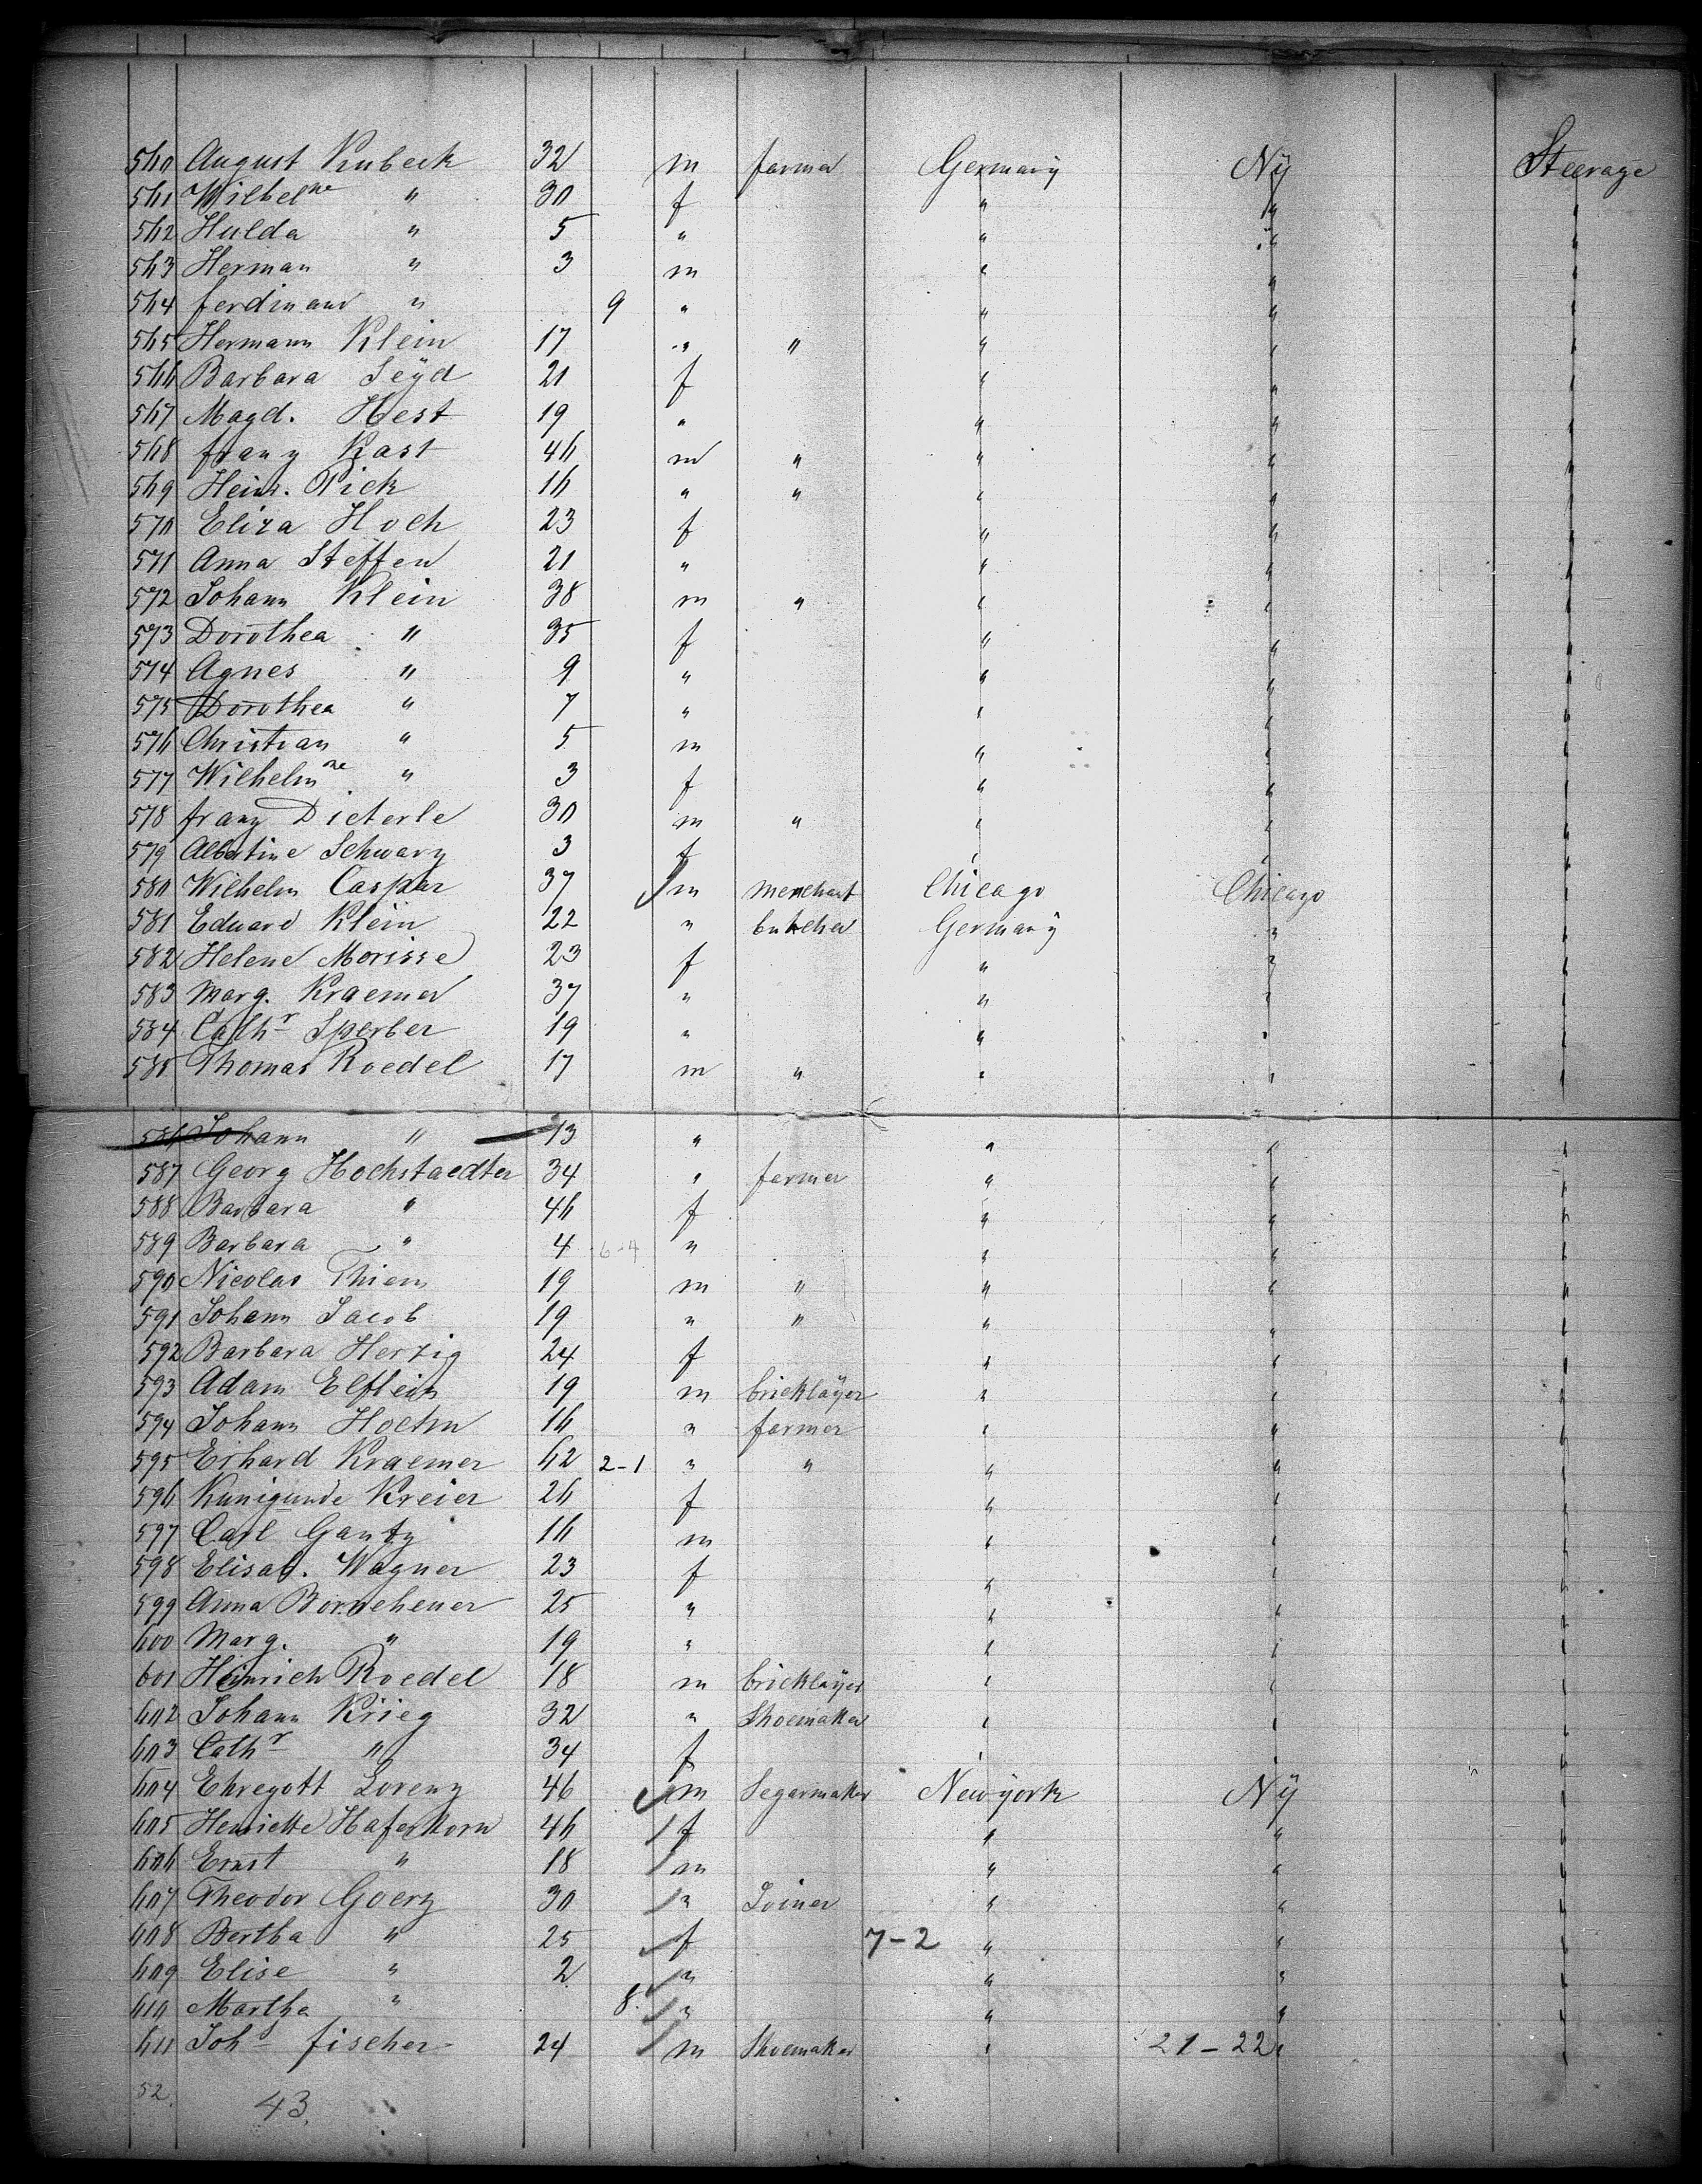 560 August Kubeck 32 m farmer Germany Ny Steerage
561 Wilhelne " 30 f " " "
562 Hulda " 5 " " " "
563 Herman " 3 m " " "
564 ferdinand " 9 " " " "
565 Hermann Klein 17 " " " " "
566 Barbara Seyd 21 f " " "
567 Magd. Hest 19 " " " "
568 franz Kast 46 m " " " "
569 Heinr. Pick 16 " " " " "
570 Eliza Hoch 23 f " " "
571 Anna Steffen 21 " " " "
572 Johann Klein 38 m " " " "
573 Dorothea " 35 f " " "
574 Agnes " 9 " " " "
575 Dorothea " 7 " " " "
576 Christian " 5 m " " "
577 Wilhelmne " 3 f " " "
578 franz Dieterle 30 m " " " "
579 Albertine Schwarz 3 f " " "
580 Wilhelm Caspar 37 m merchant Chicago Chicago "
581 Eduard Klein 22 " butcher Germany " "
582 Helene Morisse 23 f " " "
583 Marg. Kraemer 37 " " " "
584 Cathr Sperber 19 " " " "
585 Thomas Roedel 17 m " " " "
586 Johann " 13 " " " "
587 Georg Hochstaedter 34 " farmer " " "
588 Barbara " 46 f " " "
589 Barbara " 4 6-4 " " " "
590 Nicolas Thiem 19 m " " " "
591 Johann Jacob 19 " " " " "
592 Barbara Herzig 24 f " " "
593 Adam Elflein 19 m bricklayer " " "
594 Johann Hoehn 16 " farmer " " "
595 Erhard Kraemer 62 2-1 " " " " "
596 Kunigunde Kreier 26 f " " "
597 Carl Gantz 16 m " " "
598 Elisab. Wagner 23 f " " "
599 Anna Bornehener 25 " " " "
600 Marg. " 19 " " " "
601 Heinrich Roedel 18 m bricklayer " " "
602 Johann Krieg 32 " Shoemaker " " "
603 Cathr " 34 f " " "
604 Ehregott Lorenz 46 m Segarmaker Newyork Ny "
605 Henriette Haferkorn 46 f " " "
606 Ernst " 18 m " " "
607 Theodor Goerz 30 " Joiner " " "
608 Bertha " 25 f 7-2 " " "
609 Elise " 2 " " " "
610 Martha " 8. " " " "
611 Johs fischer 24 m Shoemaker " 21-22 " "
52.
43.